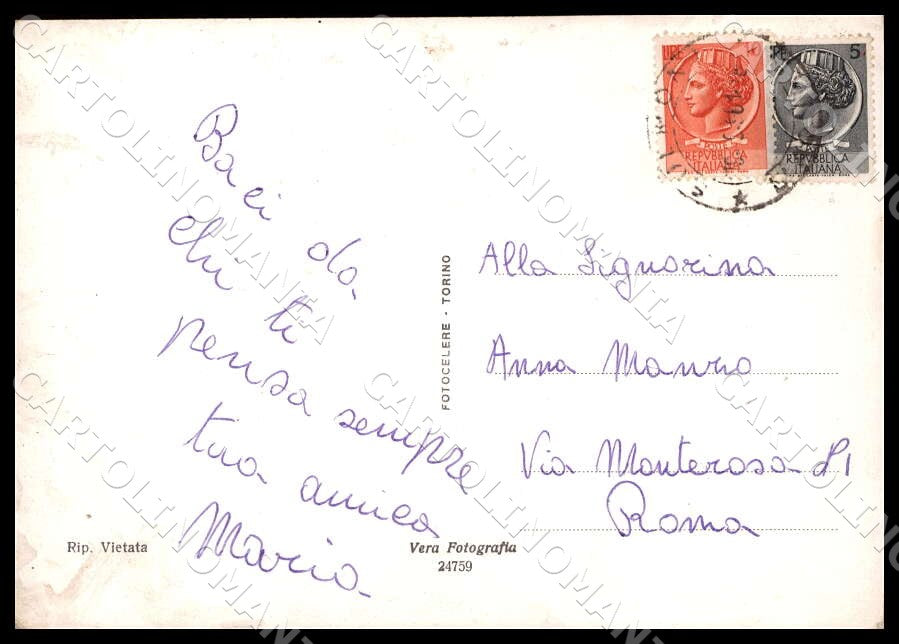 Baci da
chi ti
pensa sempre
tua amica
Maria
Alla Signorina
Anna Mauro
Via Monterosa 81
Roma
FOTOCELERE - TORINO
Rip. Vietata
Vera Fotografia
24759
LIRE
POSTE
REPVBBLICA
ITALIANA
5
POSTE
REPVBBLICA
ITALIANA
CARTOLINOMANIA
CARTOLINOMANIA
CARTOLINOMANIA
CARTOLINOMANIA